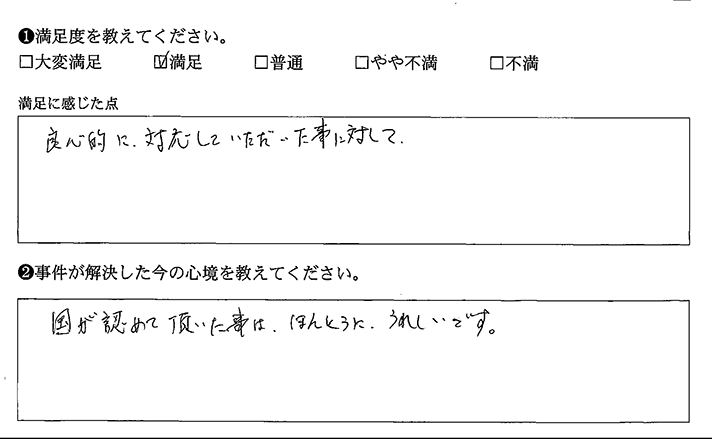 ❶満足度を教えてください。
□大変満足 ☑満足 □普通 □やや不満 □不満
満足に感じた点
良心的に、対応していただいた事に対して、
❷事件が解決した今の心境を教えてください。
国が認めて頂いた事は、ほんとうに、うれしいです。